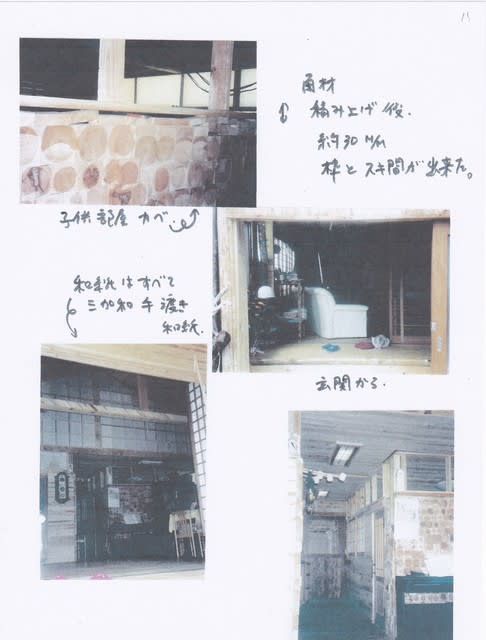 15
角材
積み上げ後.
約30㎜
枠とスキ間が出来た。
子供部屋カベ.
和紙はすべて
三加和手漉き
和紙.
玄関から.